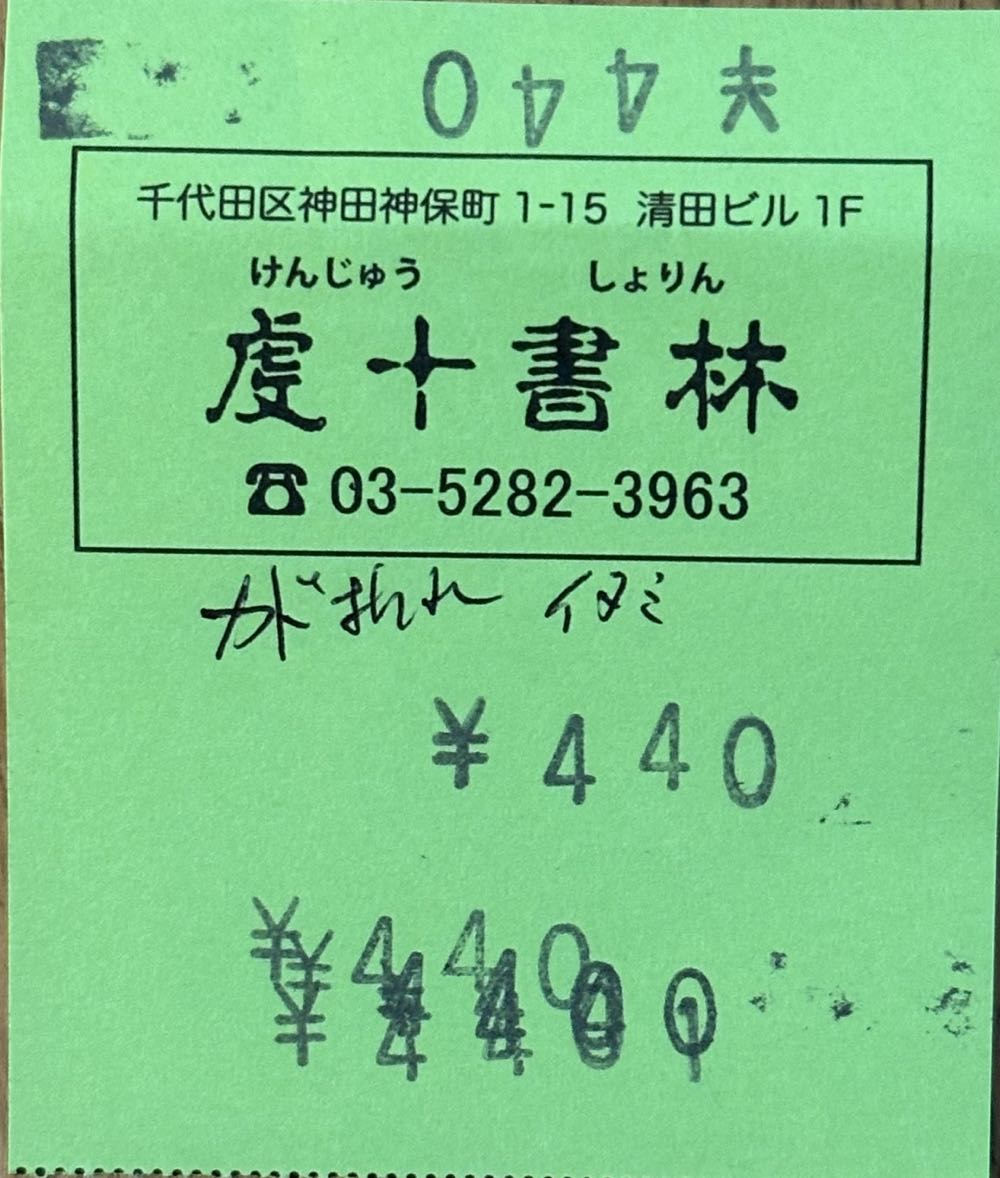 ¥440
千代田区神田神保町 1-15 清田ビル 1F
けんじゅう しょりん
虔十書林
☎ 03-5282-3963
カド折れ イタミ
¥440
¥440